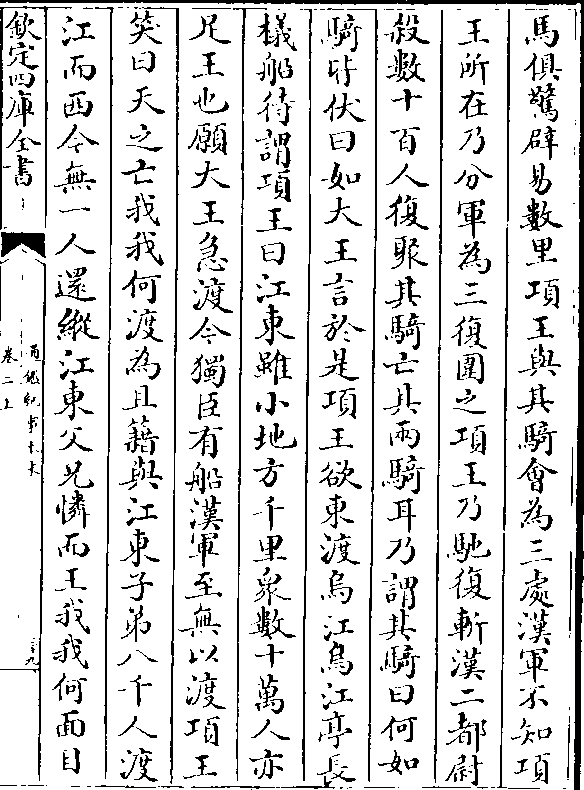 馬俱驚辟易數里項王與其騎會為三處漢軍不知項
王所在乃分軍為三復圍之項王乃馳復斬漢二都尉
殺數十百人復聚其騎亡其兩騎耳乃謂其騎曰何如
騎皆伏曰如大王言於是項王欲東渡烏江烏江亭長
檥船待謂項王曰江東雖小地方千里衆數十萬人亦
足王也願大王急渡今獨臣有船漢軍至無以渡項王
笑曰天之亡我我何渡為且籍與江東子弟八千人渡
江而西今無一人還縱江東父兄憐而王我我何面目
欽定四庫全書
通鑑紀事本末
卷二上